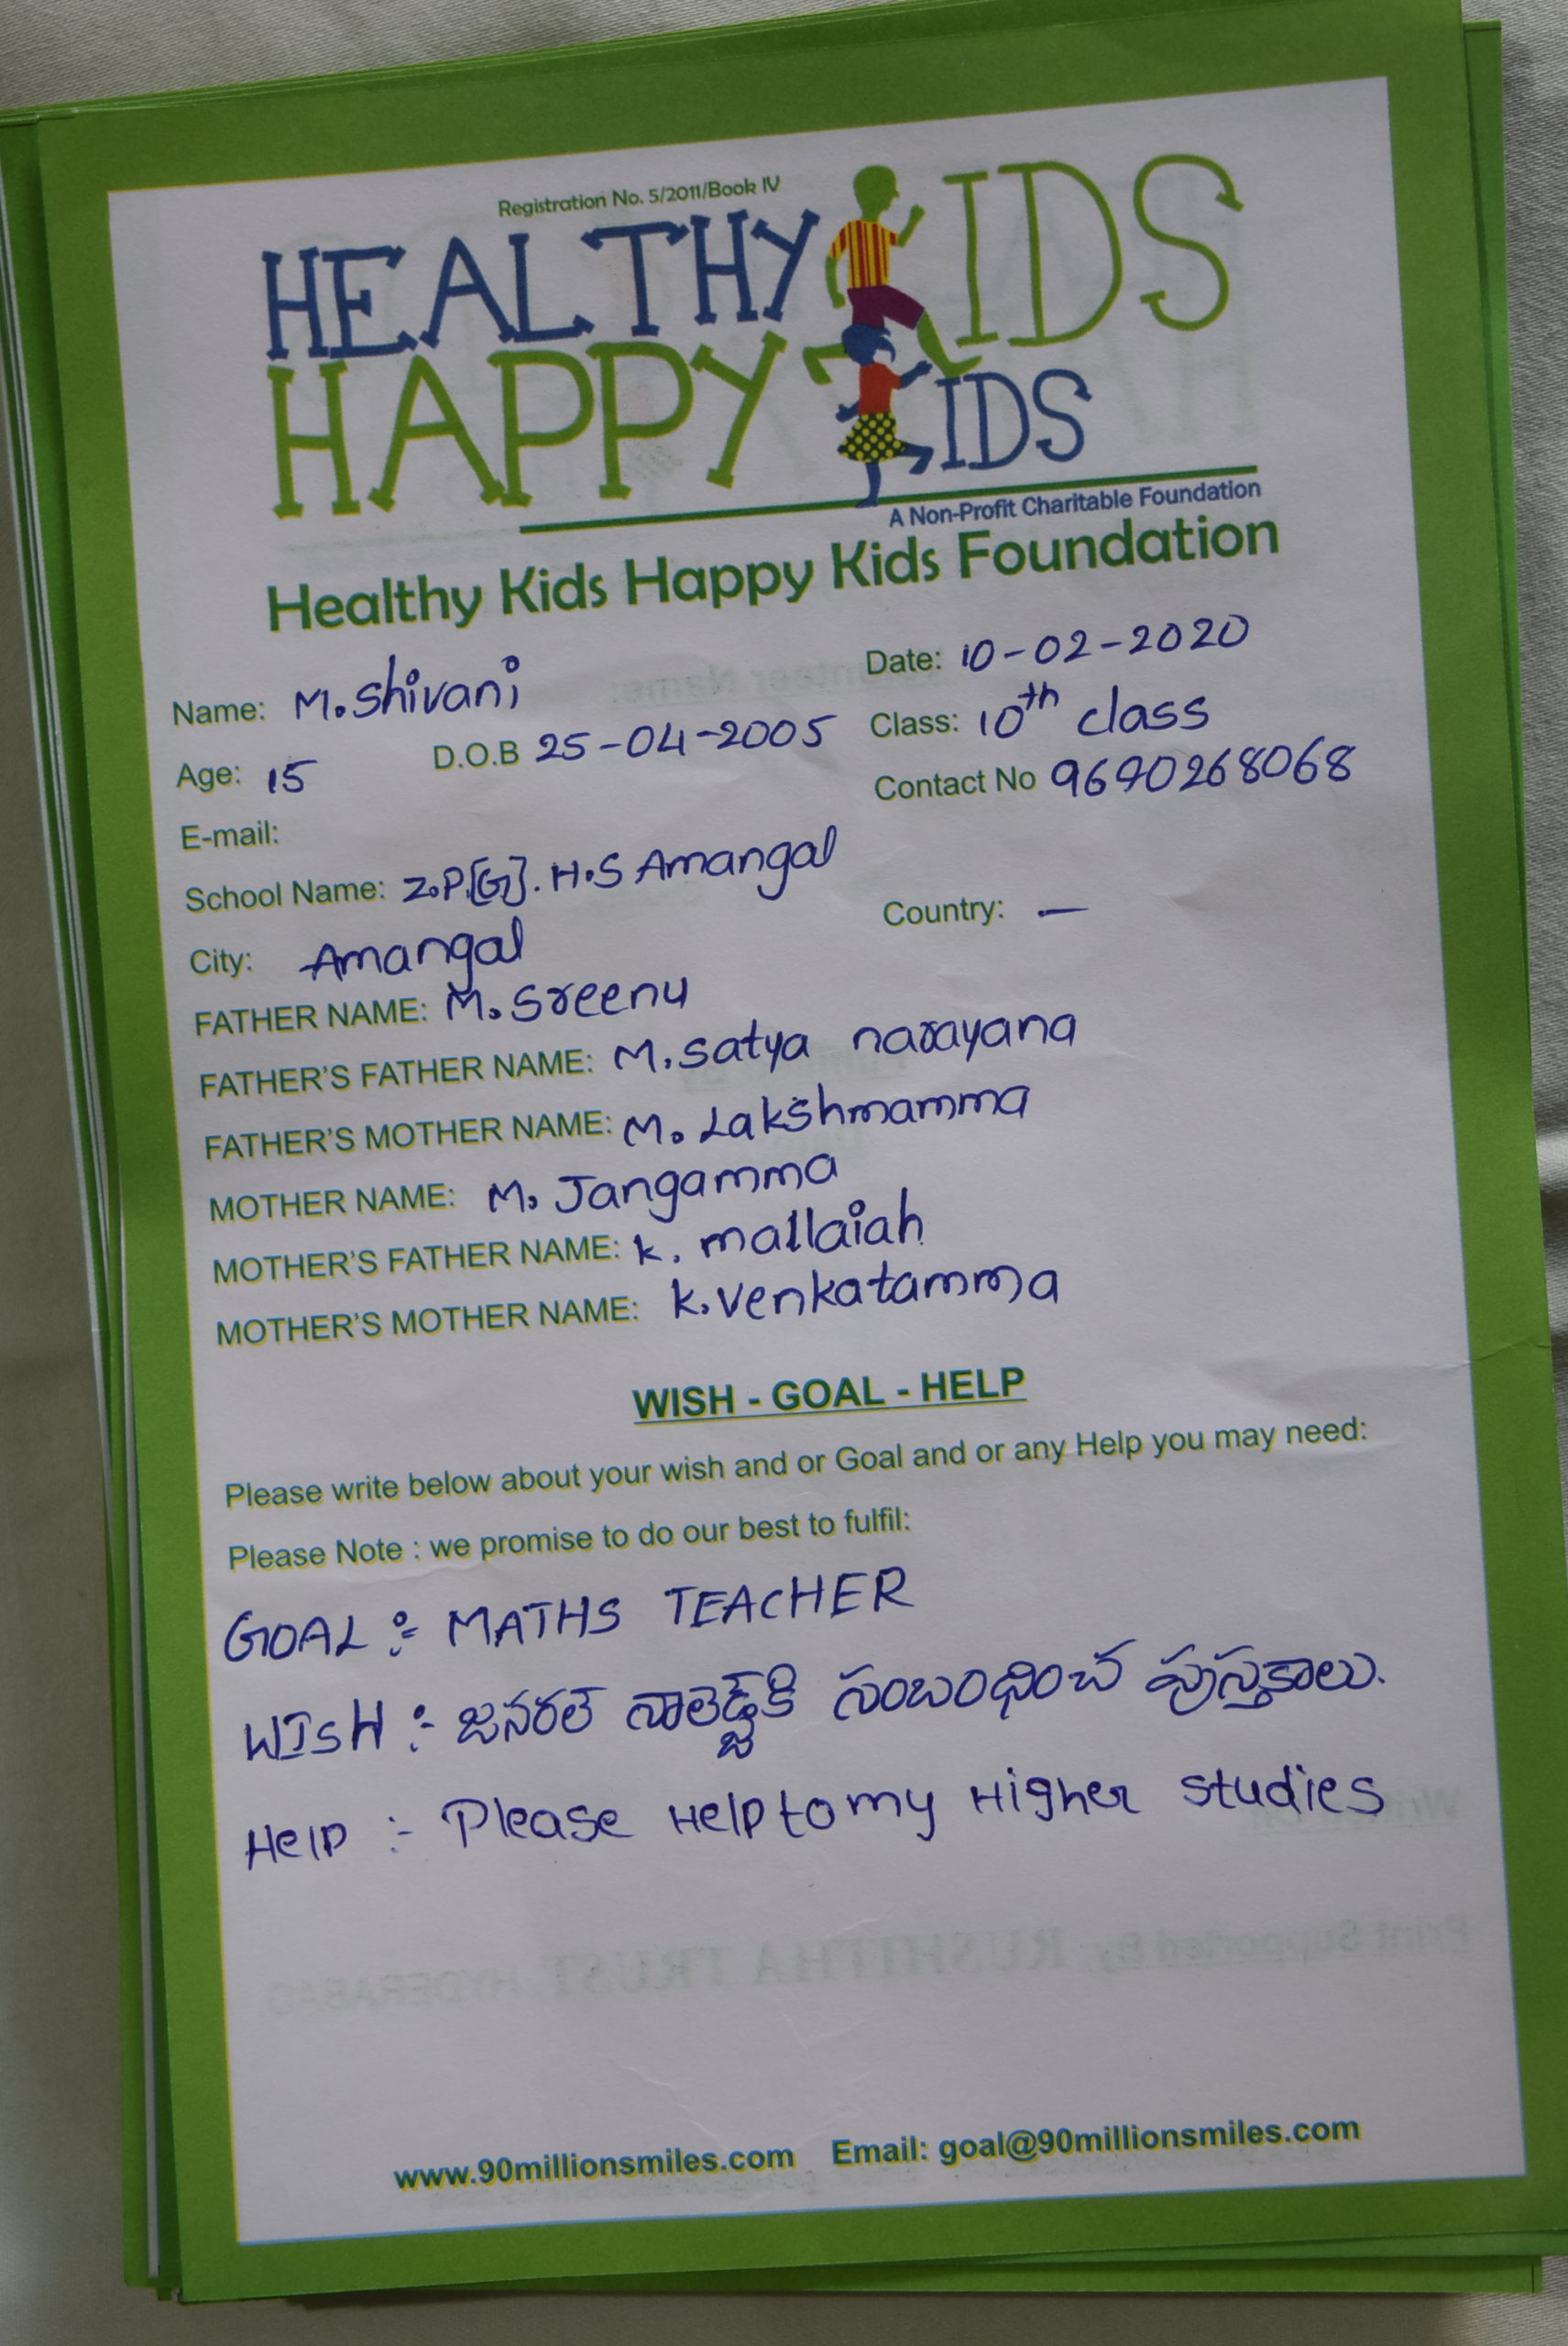 Registration No. 5/2011/Book IV
HEALTHY KIDS
HAPPY KIDS
A Non-Profit Charitable Foundation
Healthy Kids Happy Kids Foundation
Name: M. Shivani Date: 10-02-2020
Age: 15 D.O.B 25-04-2005 Class: 10th class
E-mail: Contact No 9690268068
School Name: Z.P.[G]. H.S Amangal
City: Amangal Country: —
FATHER NAME: M. Sreenu
FATHER'S FATHER NAME: M. Satya narayana
FATHER'S MOTHER NAME: M. Lakshmamma
MOTHER NAME: M. Jangamma
MOTHER'S FATHER NAME: K. mallaiah
MOTHER'S MOTHER NAME: K. Venkatamma
WISH - GOAL - HELP
Please write below about your wish and or Goal and or any Help you may need:
Please Note : we promise to do our best to fulfil:
GOAL :- MATHS TEACHER
WISH :- జనరల్ నాలెడ్జ్‌కి సంబంధించ పుస్తకాలు.
Help :- Please Help to my Higher studies
Print Supported By RUSHITHA TRUST, HYDERABAD
www.90millionsmiles.com Email: goal@90millionsmiles.com